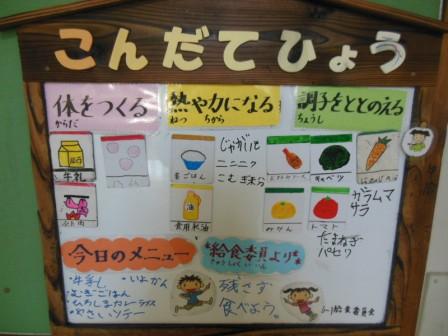 こんだてひょう
体をつくる
からだ
熱や力になる
ねつ ちから
調子をととのえる
ちょうし
牛乳
ぶた肉
麦ごはん
食用米油
じゃがいも
ニンニク
こむぎ粉
キャベツ
みかん
トマト
ガラムマ
サラ
たまねぎ
パセリ
今日のメニュー
・牛乳 ・いよかん
・むぎごはん
・ひろしまカレーライス
・やさいソテー
給食委員より
きゅうしょくいいん
残さず
食べよう。